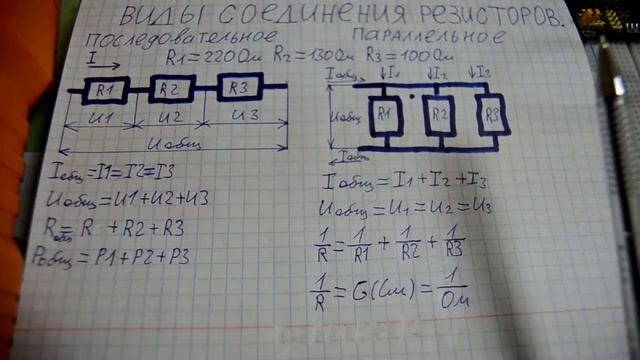 ВИДЫ СОЕДИНЕНИЯ РЕЗИСТОРОВ.
ПОСЛЕДОВАТЕЛЬНОЕ ПАРАЛЛЕЛЬНОЕ
R1=220Ом R2=130Ом R3=100Ом
I
R1 R2 R3
U1 U2 U3
Uобщ
Iобщ=I1=I2=I3
Uобщ=U1+U2+U3
Rобщ=R +R2+R3
Pобщ=P1+P2+P3
Iобщ I1 I2 I2
Uобщ R1 R2 R3
Iобщ
Iобщ=I1+I2+I3
Uобщ=U1=U2=U3
1/R=1/R1+1/R2+1/R3
1/R=G(См)=1/Ом